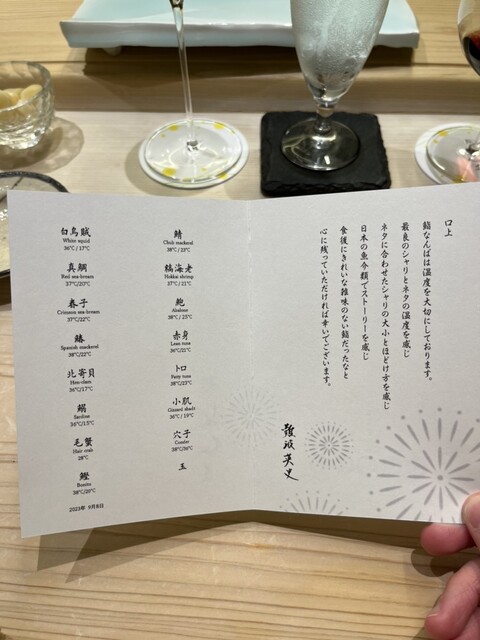 口上
鮨なんばは温度を大切にしております。
最良のシャリとネタの温度を感じ
ネタに合わせたシャリの大小とほどけ方を感じ
日本の魚今額でストーリーを感じ
食後にきれいな雑味のない鮨だったなと
心に残っていただければ幸いでございます。
難波英史
鯖
Chub mackerel
38℃/23℃
縞海老
Hokkai shrimp
37℃/21℃
鮑
Abalone
38℃/25℃
赤身
Lean tuna
36℃/21℃
トロ
Fatty tuna
38℃/23℃
小肌
Gizzard shad
36℃/19℃
穴子
Conder
38℃/36℃
玉
白烏賊
White squid
36℃/17℃
真鯛
Red sea-bream
37℃/20℃
春子
Crimson sea-bream
37℃/22℃
鰆
Spanish mackerel
38℃/22℃
北寄貝
Hen-clam
36℃/17℃
鰯
Sardine
36℃/15℃
毛蟹
Hair crab
28℃
鰹
Bonito
38℃/20℃
2023年 9月8日